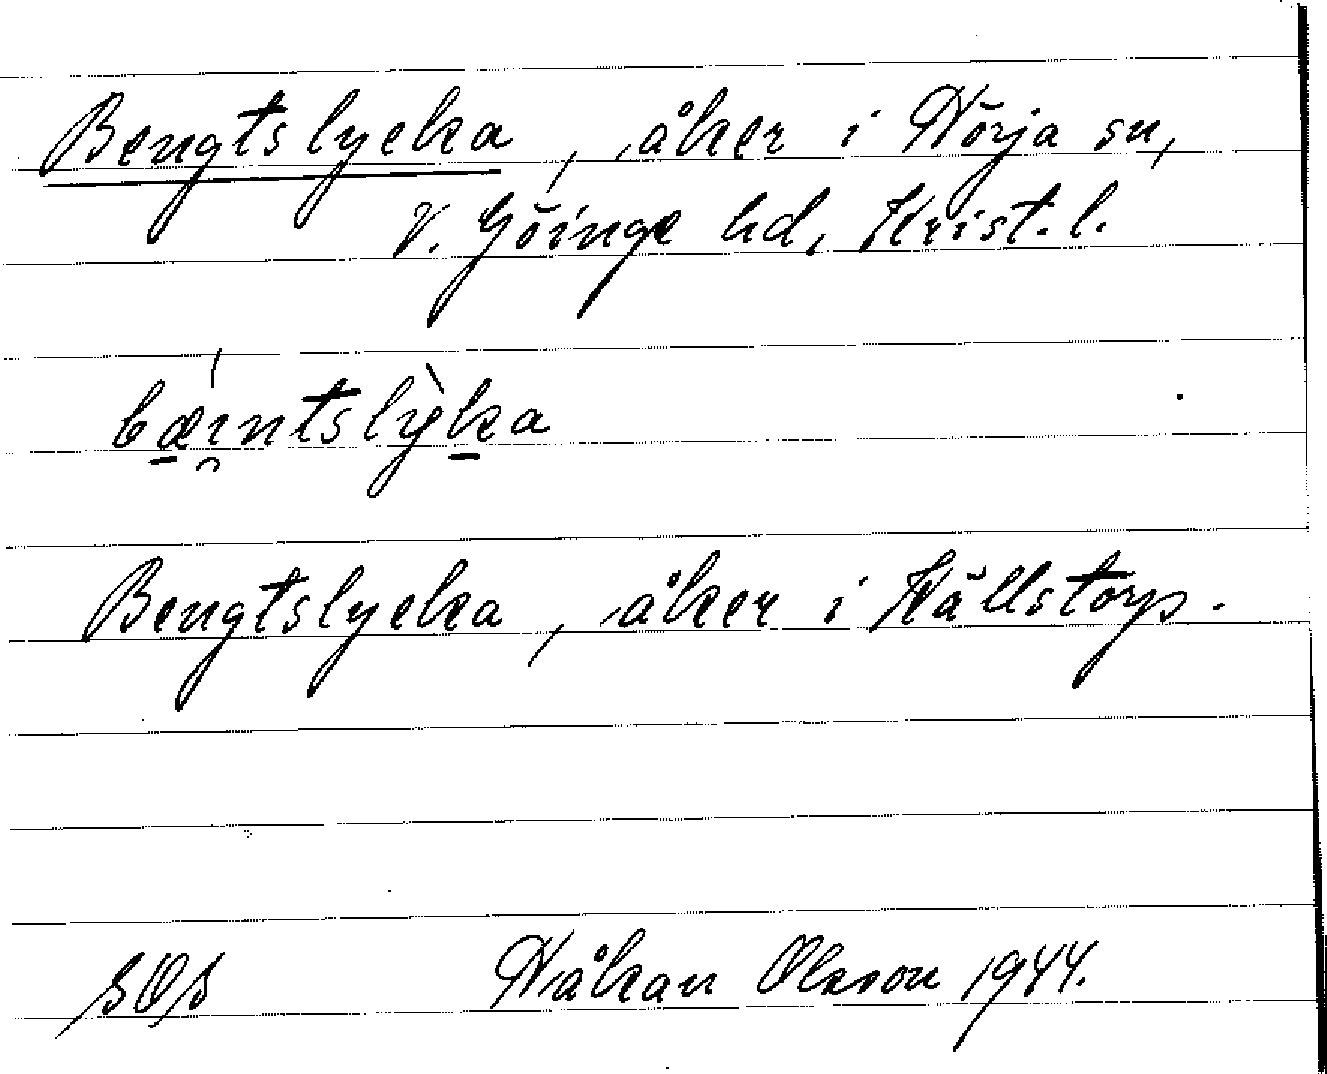 Bengtslycka, åker i Nörja sn,
V. Göinge hd, Krist. l.
bæi̯ntslỳka
Bengtslycka, åker i Hällstorp.
SOS Håkan Olsson 1944.